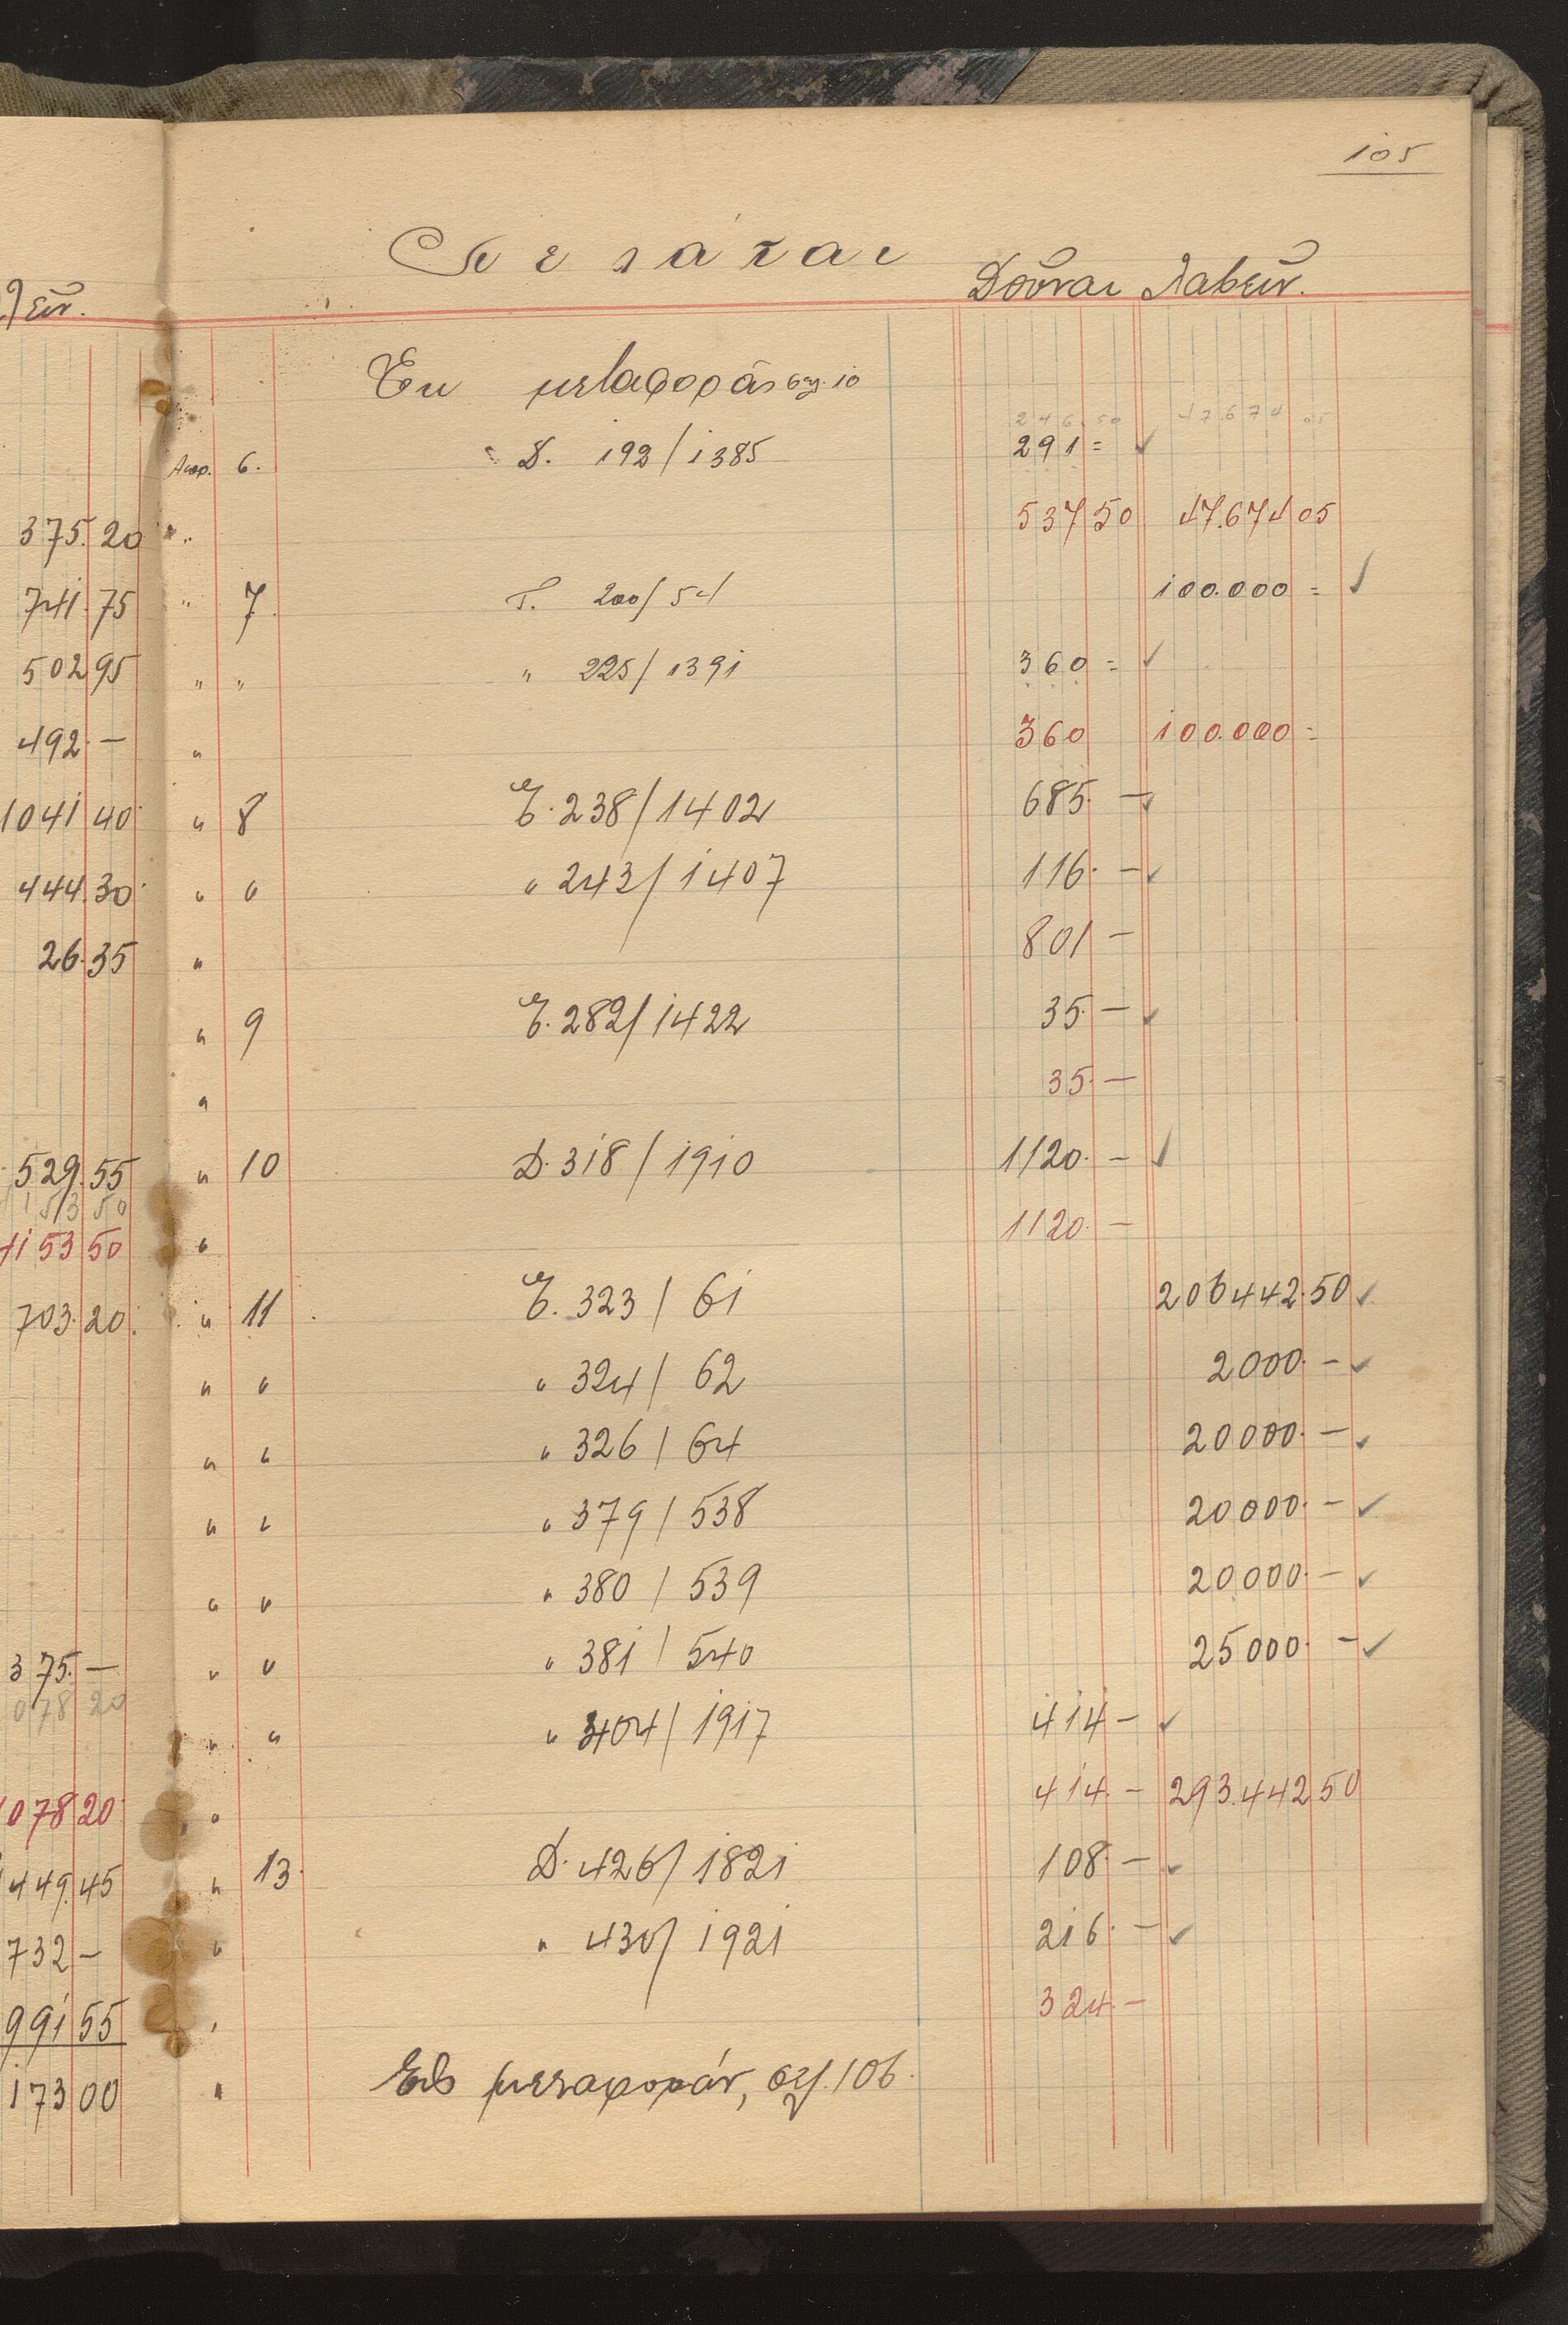 105
Πελάται
Δοῦναι Λαβεῖν.
Ἐκ μεταφορᾶς σελ. 10
246.50 47674 05
Απρ. 6. Δ. 192/1385 291 =
537 50 47.674 05
" 7 Γ. 200/54 100.000 =
" " " 225/1391 360 =
" 360 100.000 =
" 8 Ε. 238/1402 685 —
" " " 243/1407 116. —
" 801 —
" 9 Ε. 282/1422 35. —
" 35. —
" 10 Δ. 318/1910 1120. —
" 1120. —
" 11 Ε. 323/61 206442.50
" " " 324/62 2000. —
" " " 326/64 20000. —
" " " 379/538 20000. —
" " " 380/539 20000. —
" " " 381/540 25000. —
" " " 404/1917 414 —
" 414. — 293.442 50
" 13. Δ. 426/1821 108. —
" " 430/1921 216. —
" 324. —
" Εἰς μεταφοράν, σελ. 106.
375.20
741.75
502 95
492. —
1041 40
444.30
26.35
529.55
153 50
153 50
703.20
375. —
078 20
1078 20
449.45
732 —
991 55
173 00